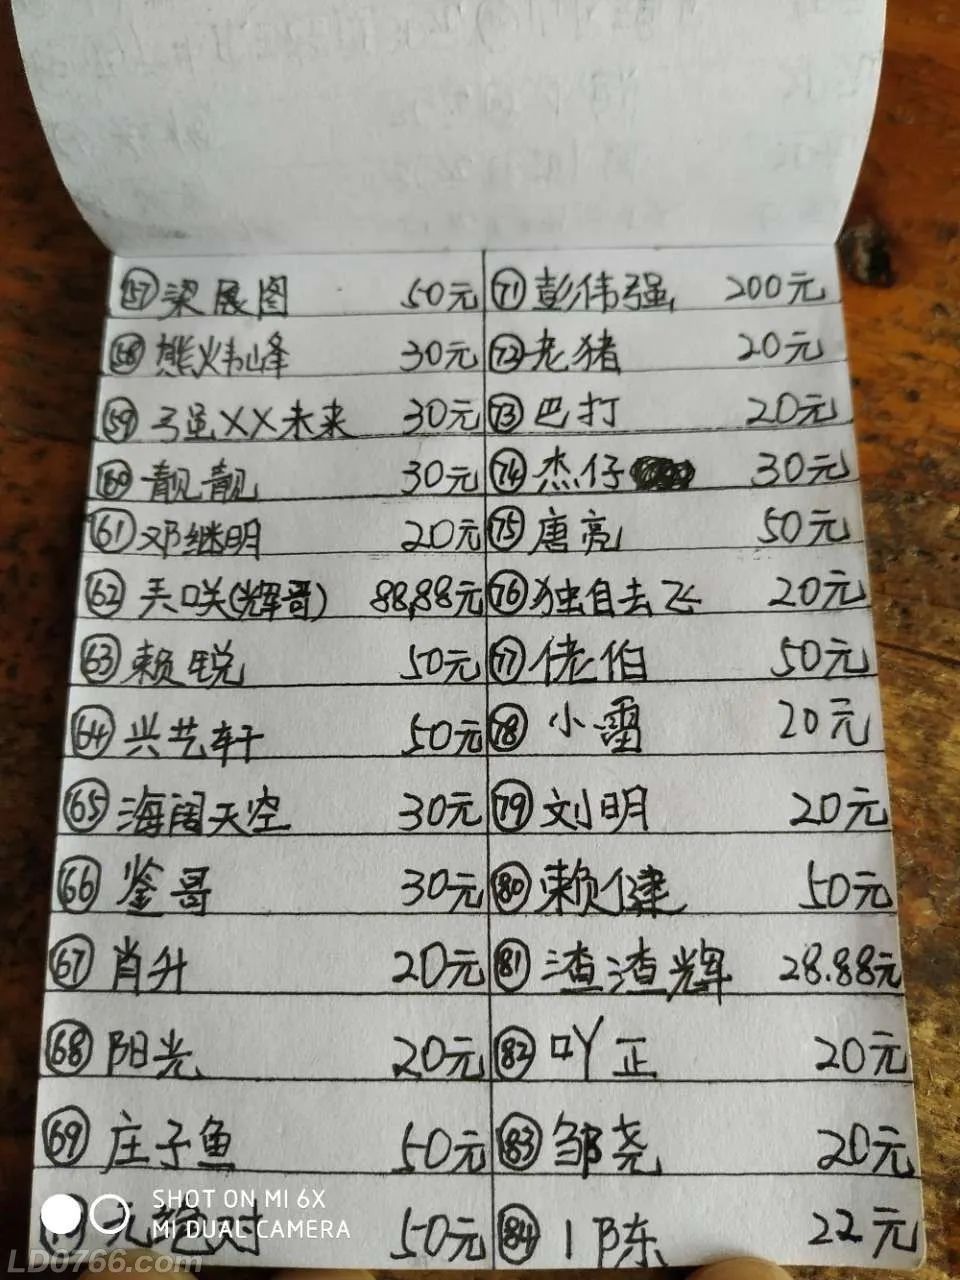 57 梁展图 50元
58 熊炜峰 30元
59 弓虽XX未来 30元
60 靓靓 30元
61 邓继明 20元
62 (辉哥) 88.88元
63 赖锐 50元
64 兴艺轩 50元
65 海阔天空 30元
66 鉴哥 30元
67 肖升 20元
68 阳光 20元
69 庄子鱼 50元
绝对 50元
71 彭伟强 200元
72 老猪 20元
73 巴打 20元
74 杰仔 30元
75 唐亮 50元
76 独自去飞 20元
77 佬伯 50元
78 小雷 20元
79 刘明 20元
80 赖健 50元
81 渣渣辉 28.88元
82 吖正 20元
83 邹尧 20元
84 陈 22元
SHOT ON MI 6X
MI DUAL CAMERA
LD0766.com